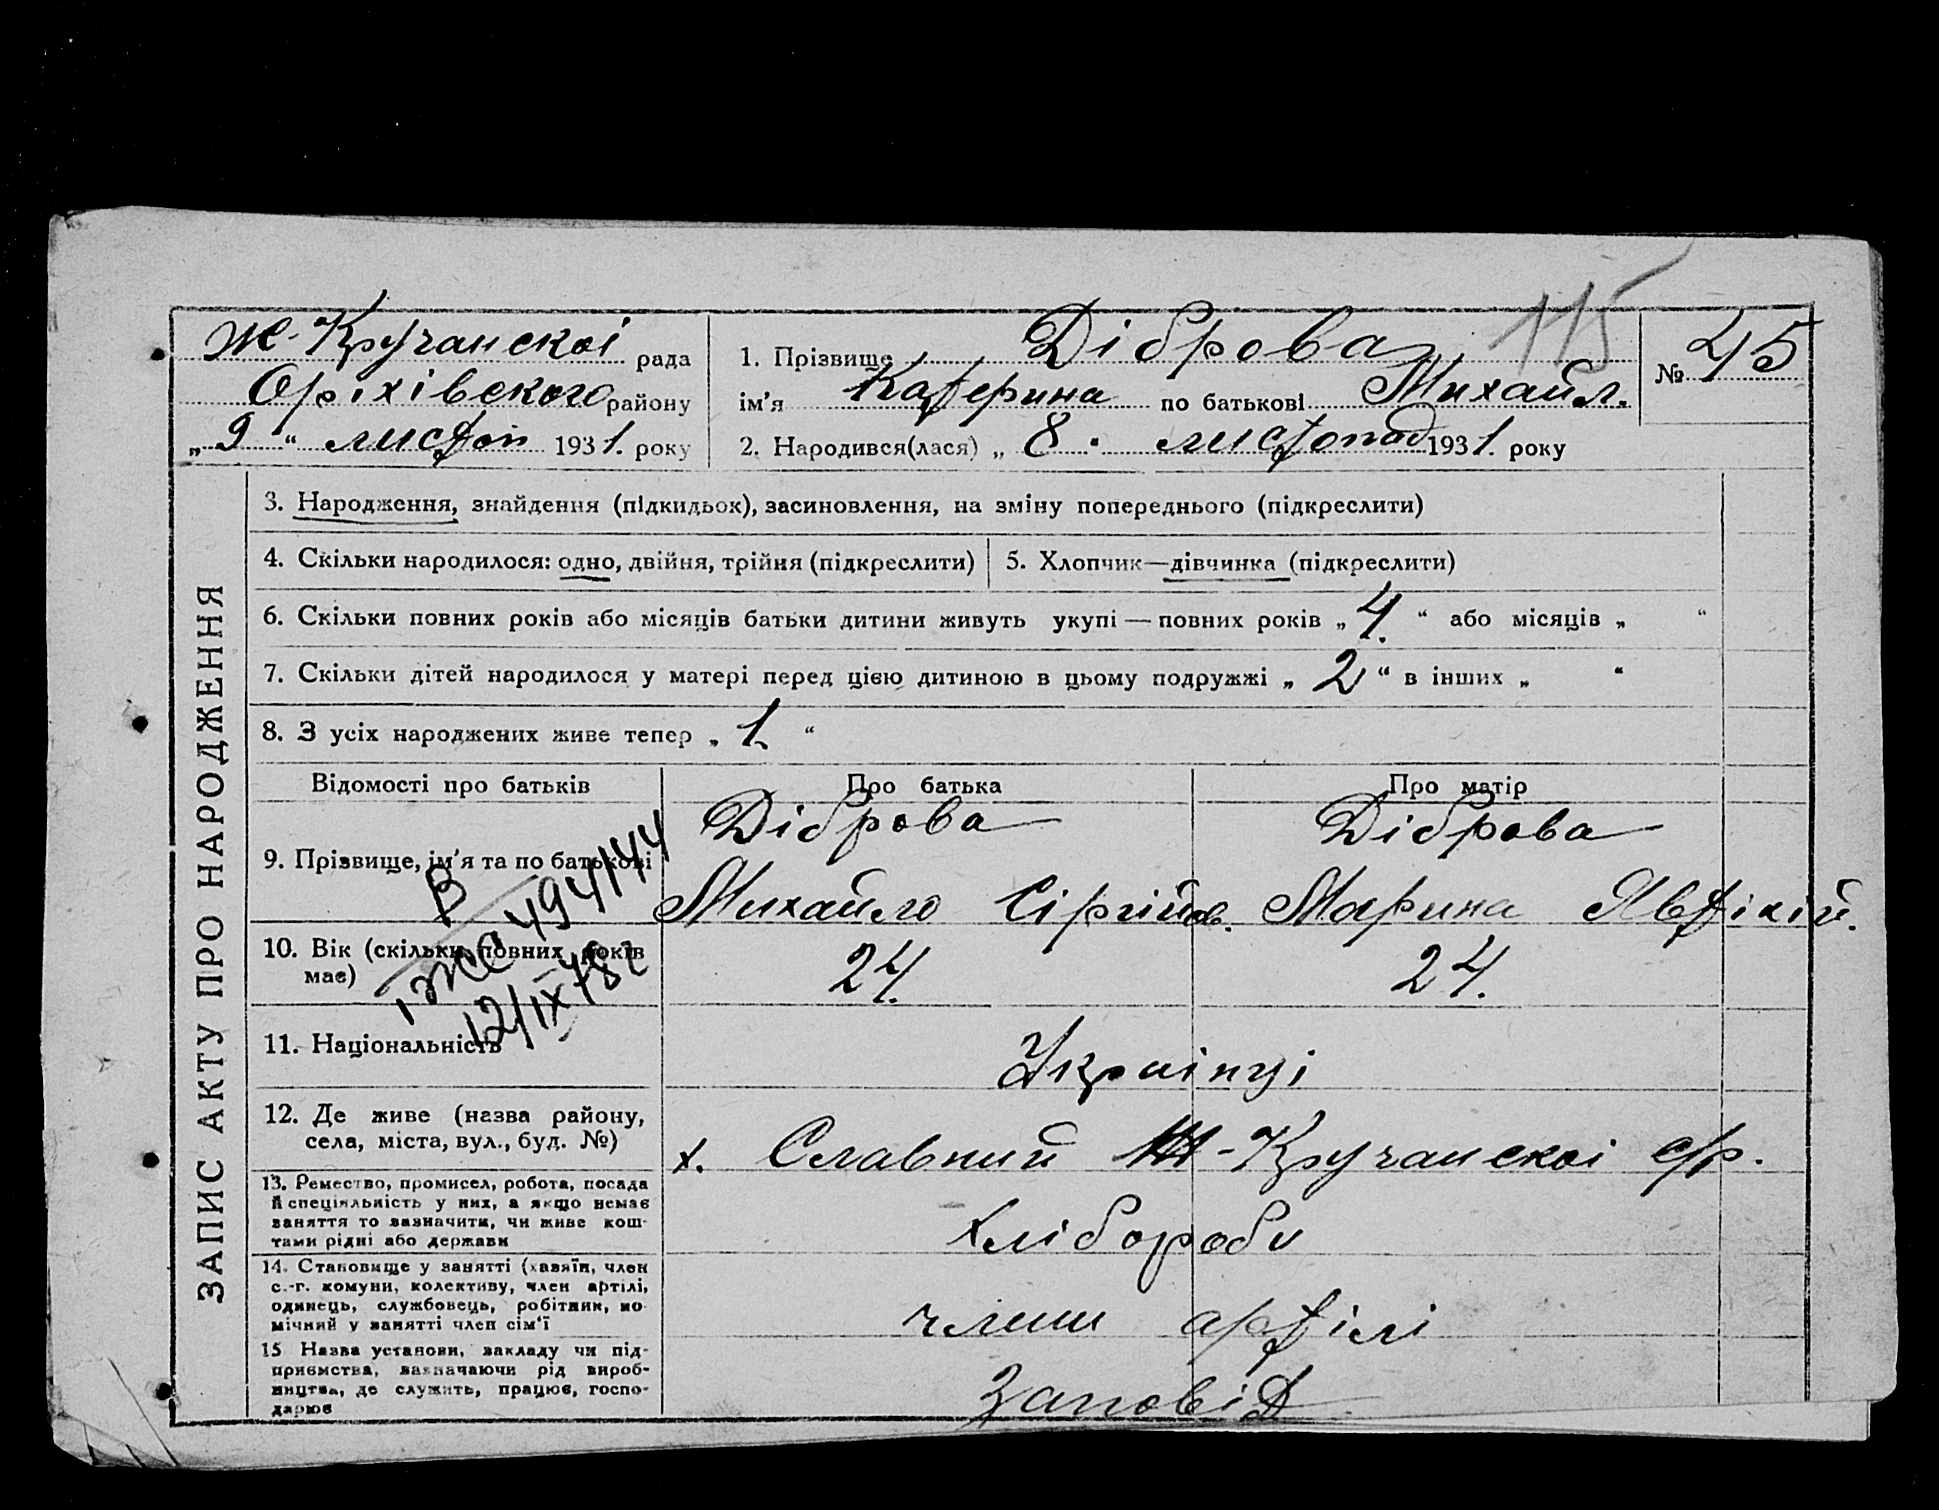 115
Ж-Кручанскоі рада
Оріхівского району
„ 9 “ листоп 1931. року
1. Прізвище Діброва
ім'я Катерина по батькові Михайл.
2. Народився(лася) „ 8. листопад 1931. року
№ 45
ЗАПИС АКТУ ПРО НАРОДЖЕННЯ
3. Народження, знайдення (підкидьок), засиновлення, на зміну попереднього (підкреслити)
4. Скільки народилося: одно, двійня, трійня (підкреслити)
5. Хлопчик—дівчинка (підкреслити)
6. Скільки повних років або місяців батьки дитини живуть укупі — повних років „ 4. “ або місяців „ “
7. Скільки дітей народилося у матері перед цією дитиною в цьому подружжі „ 2 “ в інших „ “
8. З усіх народжених живе тепер „ 1. “
Відомості про батьків
Про батька
Про матір
9. Прізвище, ім'я та по батькові
Діброва
Михайло Сіргійов.
Діброва
Марина Явтіхій.
494144
12/IX-78г
10. Вік (скільки повних років
має)
24.
24.
11. Національність
Украінці
12. Де живе (назва району,
села, міста, вул., буд. №)
х. Славний Ж-Кручанскоі с/р.
13. Ремество, промисел, робота, посада
й спеціяльність у них, а якщо немає
заняття то зазначити, чи живе кош-
тами рідні або держави
Хліборобі
14. Становище у занятті (хазяїн, член
с.-г. комуни, колективу, член артілі,
одинець, службовець, робітник, по-
мічний у занятті член сім'ї
члени артілі
15 Назва установи, закладу чи під-
приємства, зазначаючи рід вироб-
ництва, де служить, працює, госпо-
дарює
Заповіт